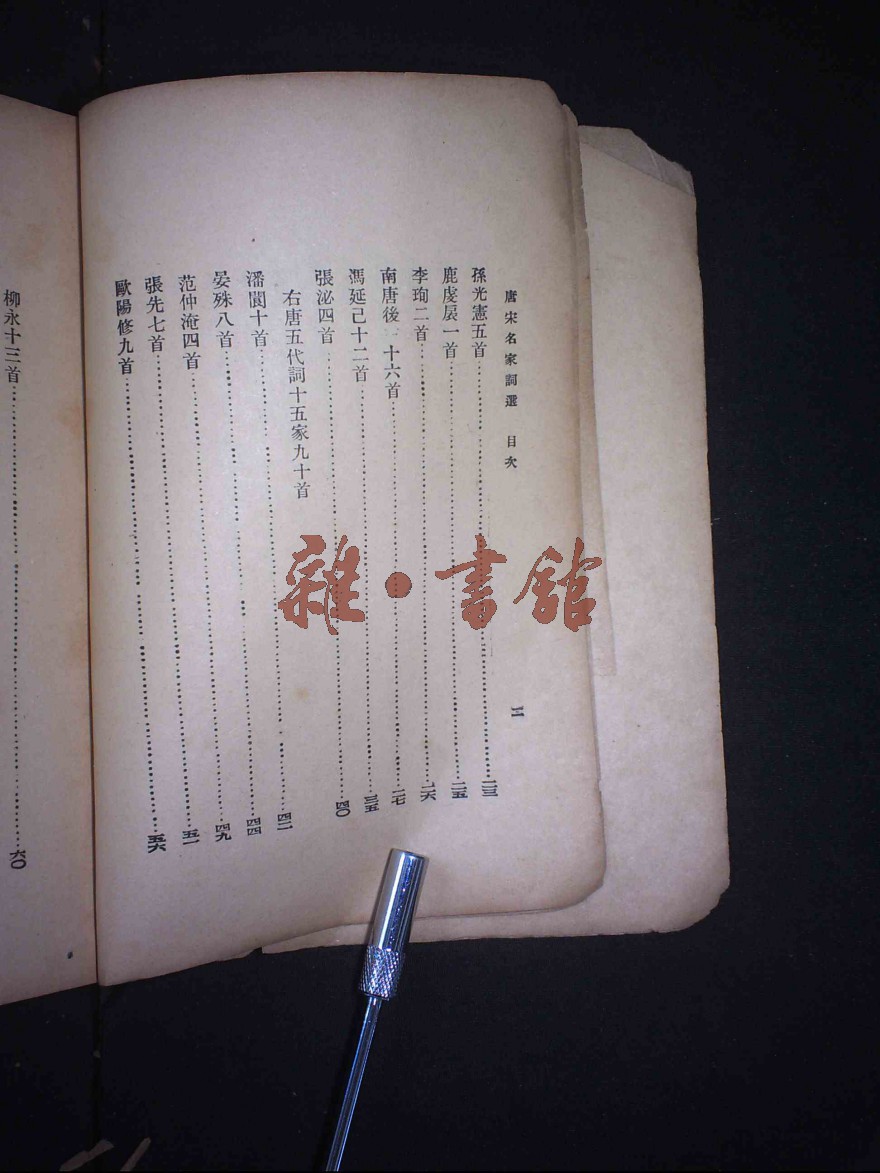 唐宋名家詞選 目次 二
孫光憲五首……二三
鹿虔扆一首……二五
李珣二首……二六
南唐後 十六首……二七
馮延己十二首……三五
張泌四首……四〇
右唐五代詞十五家九十首
潘閬十首……四二
晏殊八首……四四
范仲淹四首……四九
張先七首……五一
歐陽修九首……五六
柳永十三首……六〇
雜·書館